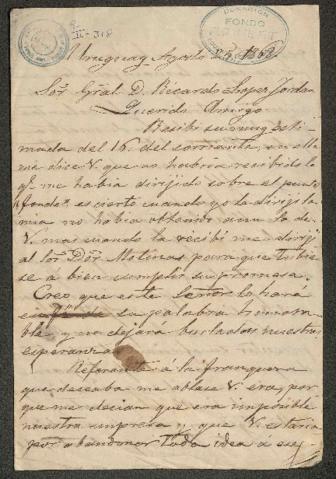 II-318
DONACIÓN
FONDO
Uruguay Agosto 1868
Sor. Gral. D. Ricardo Lopez Jordan
Querido Amigo
Recibí su muy esti
mada del 16 del corriente, en ella
me dice V. que no habia recibido la
qe. me habia dirijido sobre el
es cierto cuando yo le dirijí la
mia no habia obtenido aun la de
V. mas cuando la recibí me dirijí
al Sor. Dor. Molinas para que tubie
se á bien cumplir su promesa.
Creo que este Señor lo hará
su palabra
ble y no dejará burladas nuestras
esperanzas
Referente á la franqueza
que deseaba me ablase V. era, por
que me decian que era imposible
nuestra empresa y que V. estaria
por abandonar toda idea á ese